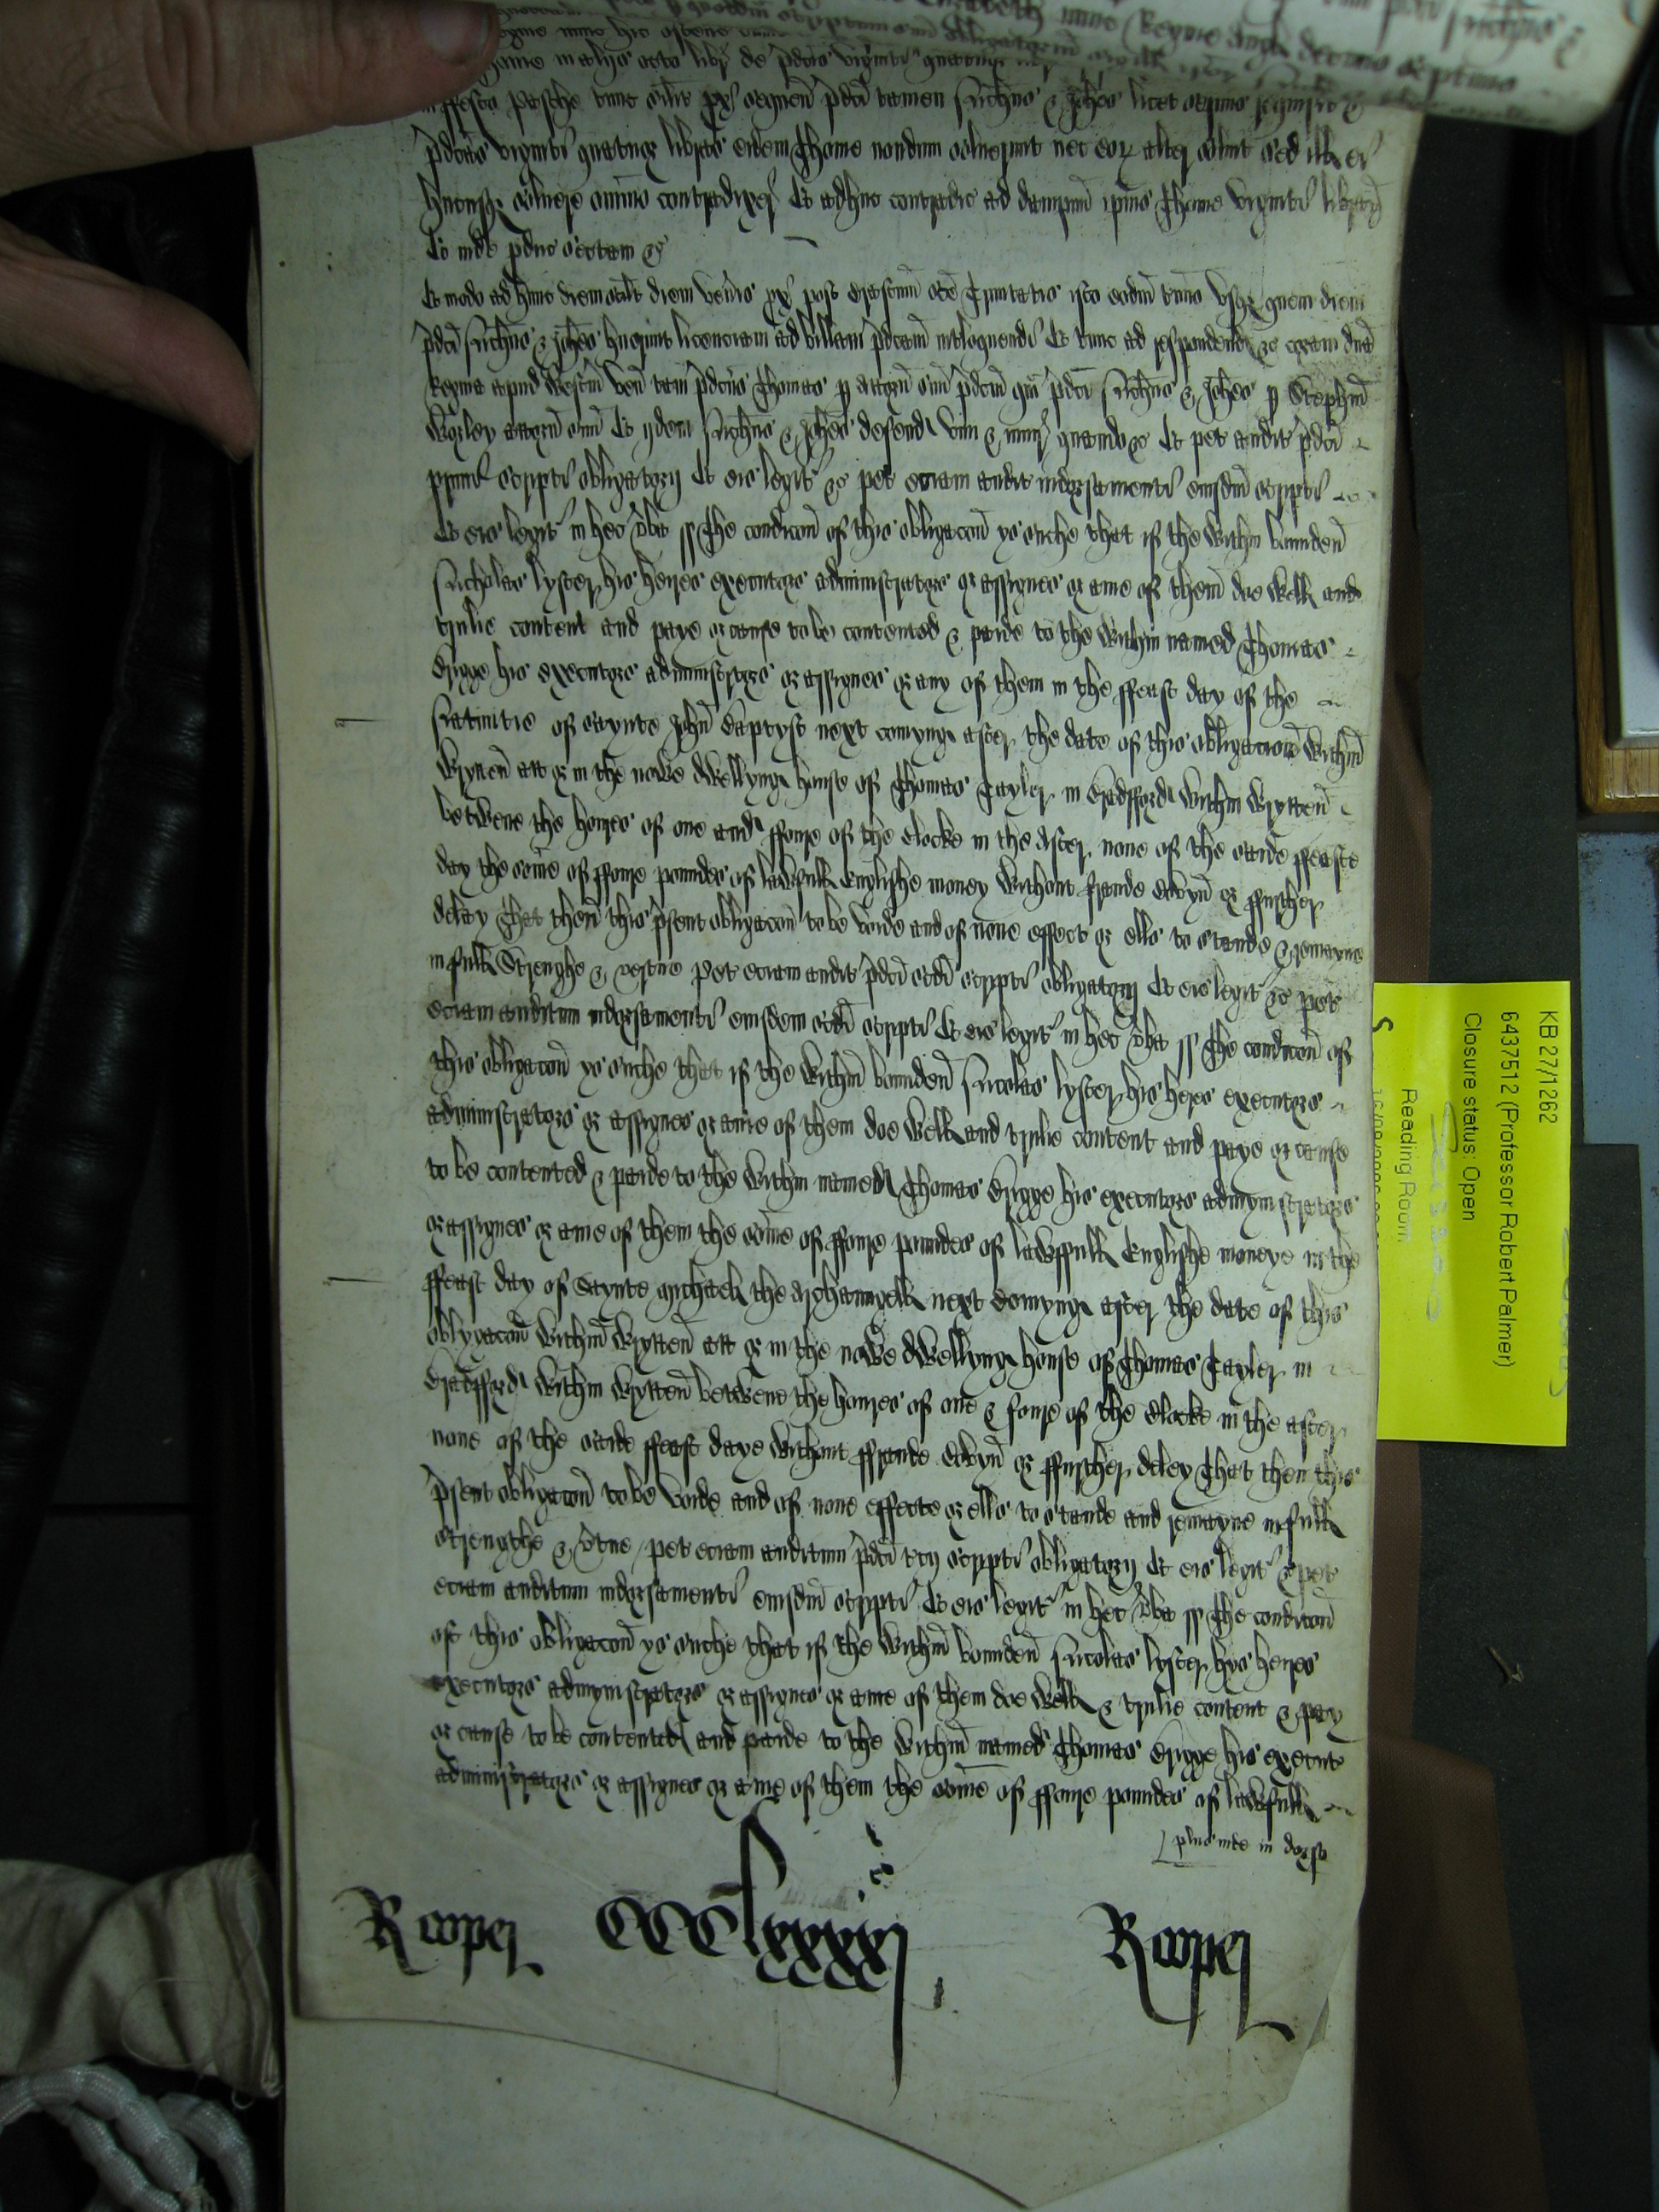 in ffesto Pasche tunc px sequen pdci tamen Nichus & Johes licet sepius requisit &
pdcas viginti quatuor libras eidem Thome nondum solverunt nec eoz alter solvit sed ill ei
hucusqz solvere omino contradixer Et adhuc contradic ad dampnu ipius Thome viginti libraz
Et inde pduc sectam &c
Et modo ad hunc diem scilt diem veneris px post crastinu sce Trinitatis isto eodm tmino usqz quem diem
pdci Nichus & Johes huerunt licenciam ad billam pdcam intloquendi Et tunc ad respondend &c coram dna
Regina apud Westm ven tam pdcus Thomas p attorn suu pdcm qm pdci Nichus & Johes p Stephm
Worley attorn suu Et ijdem Nichus & Johes defend vim & iniur quando &c Et pet audit pdci
primi scripti obligatorij Et eis legit &c pet eciam audit indorsamenti eiusdm scripti
Et eis legit in hec vba ss The condicon of this obligacon ys suche that if the within bounden
Nicholas lyster his heires executors administrators or assignes or anie of them doe well and
trulie content and paye or cause to be contented & paide to the within named Thomas
Brigge his executors administrators or assignes or any of them in the ffeast day of the
Nativitie of saynte John Baptyst next comyng after the date of this obligacion within
Wrytten att or in the nowe dwellyng house of Thomas Tayler in Bradfford within wrytten
betwene the houres of one and ffoure of the Clocke in the After none of the saide ffeaste
day the some of ffoure poundes of lawfull Englishe money without fraude Covyn or ffurther
delay That then this psent obligacon to be voide and of none effect or ells to stande & remayne
in full Strengthe & vertue Pet eciam audit pdci scdi scripti obligatorij Et eis legit &c pet
eciam auditum indorsamenti eiusdem scdi scripti Et eis legit in hec vba ss The condicon of
this obligacon ys suche that if the within bounden Nicolas lyster his heires executors
administrators or assignes or anie of them doe well and trulie content and paye or cause
to be contented & paide to the within named Thomas Brigge his executors admynistrators
or assignes or anie of them the some of ffoure poundes of lawffull Englishe moneye in the
ffeast day of Saynte michaell the Archaungell next Comyng after the date of this
oblygacon within wrytten att or in the nowe dwellyng house of Thomas Tayler in
Bradfford within wrytten betwene the houres of one & foure of the Clocke in the after
none of the saide ffeast daye without ffraude Covyn or ffurther deley That then this
psent obligacon to be voide and of none effecte or ells to stande and remayne in full
strengthe & vtue pet eciam auditum pdci tcij scripti obligatorij Et eis legit & pet
eciam auditum indorsamenti eiusdm scripti Et eis legit in hec vba ss The condicon
of this obligacon ys suche that if the within bounden Nicolas lyster hys heires
executors admynistrators or assignes or anie of them doe well & trulie content & pay
or cause to be contented and paide to the within named Thomas Brigge his execut
administrators or assignes or anie of them the some of ffoure poundes of lawfull
plus inde in dorso
Rooper CCClxxxxij Rooper
KB 27/1262
6437512 (Professor Robert Palmer)
Closure status: Open
Reading Room